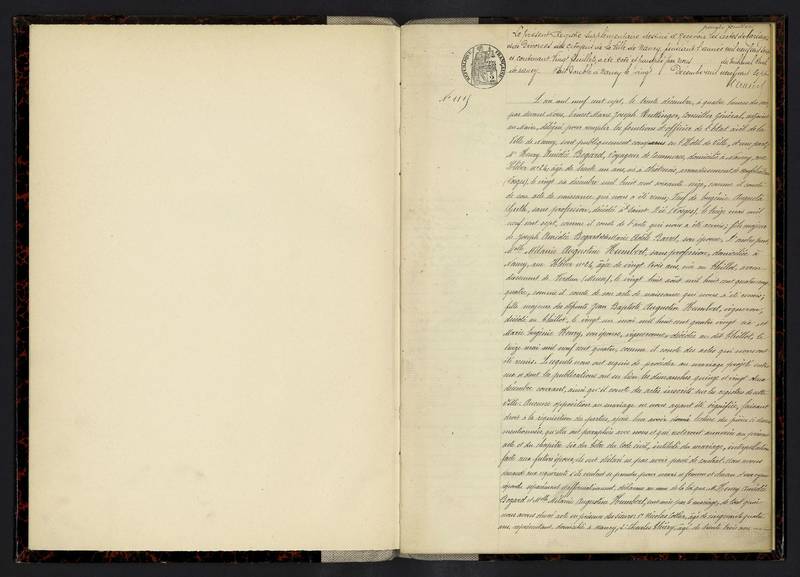 Le présent Registre supplémentaire destiné à recevoir les actes de
et de Divorces des citoyens de la Ville de Nancy, pendant l'année mil neuf cent
et contenant vingt feuillets a été coté et paraphé par nous
de Nancy. Fait double à Nancy le vingt Décembre mil neuf cent sept
RÉPUBLIQUE FRANÇAISE
N° 1115
L'an mil neuf cent sept, le trente décembre, à quatre heures du soir
par devant Nous, Ernest Marie Joseph Conseiller Général, adjoint
au Maire, délégué pour remplir les fonctions d'officier de l'état civil de la
Ville de Nancy, sont publiquement comparus en l'Hôtel de Ville, d'une part,
M. Henry Amédée Begard, Voyageur de Commerce, domicilié à Nancy, rue
Kléber n° 24, âgé de trente un ans, né à arrondissement de Neufchâteau
(Vosges), le vingt six décembre mil huit cent soixante seize, comme il conste
de son acte de naissance qui nous a été remis; Veuf de Eugénie Augusta
sans profession, décédée à Saint Dié (Vosges), le treize mai mil
neuf cent sept, comme il conste de l'acte qui nous a été remis; fils majeur
de Joseph Amédée Begard et de son épouse. D'autre part,
Melle Mélanie Augustine Humbert, sans profession, domiciliée à
Nancy, rue Kléber n° 24, âgée de vingt trois ans, née au Thillot, arron
dissement de Verdun (Meuse), le vingt huit août mil huit cent quatre vingt
quatre, comme il conste de son acte de naissance qui nous a été remis;
fille majeure des défunts Jean Baptiste Augustin Humbert, vigneron,
décédé au Thillot, le vingt un mai mil huit cent quatre vingt six, et
Marie Eugénie Henry, son épouse, vigneronne, décédée au dit Thillot, le
treize mai mil neuf cent quatre, comme il conste des actes qui nous ont
été remis. Lesquels nous ont requis de procéder au mariage projeté entre
eux et dont les publications ont eu lieu les dimanches quinze et vingt deux
décembre courant, ainsi qu'il conste des actes inscrits sur les registres de cette
Ville. Aucune opposition au mariage ne nous ayant été signifiée, faisant
droit à la réquisition des parties, après leur avoir donné lecture des pièces ci dessus
mentionnées, qu'elles ont paraphées avec nous et qui resteront annexées au présent
acte et du chapitre six du titre du Code civil, intitulé du mariage, interpellation
faite aux futurs époux, ils ont déclaré ne pas avoir passé de contrat. Nous avons
demandé aux requérants s'ils veulent se prendre pour mari et femme et chacun d'eux ayant
répondu séparément et affirmativement, déclarons au nom de la loi que M. Henry Amédée
Begard et Melle Mélanie Augustine Humbert, sont unis par le mariage, de tout quoi
nous avons dressé acte en présence des Sieurs 1° Nicolas Collin, âgé de cinquante quatre
ans, représentant, domicilié à Nancy, 2° Charles âgé de trente trois ans